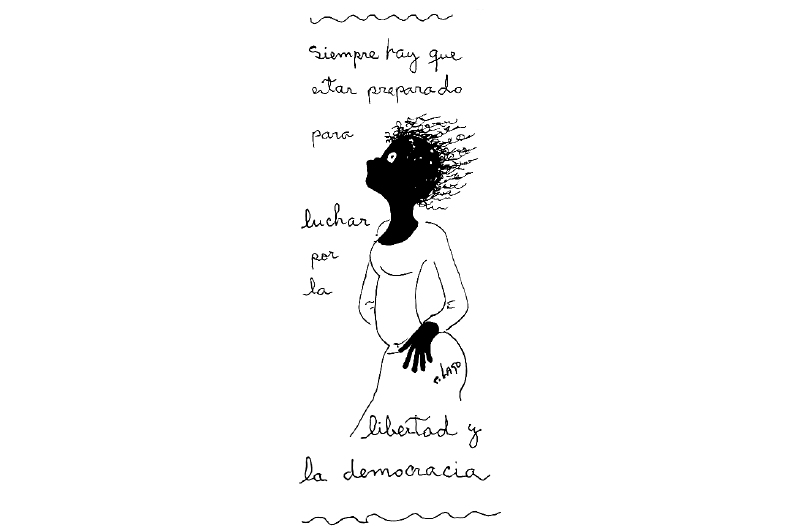 Siempre hay que
estar preparado
para
luchar
por
la
libertad y
la democracia